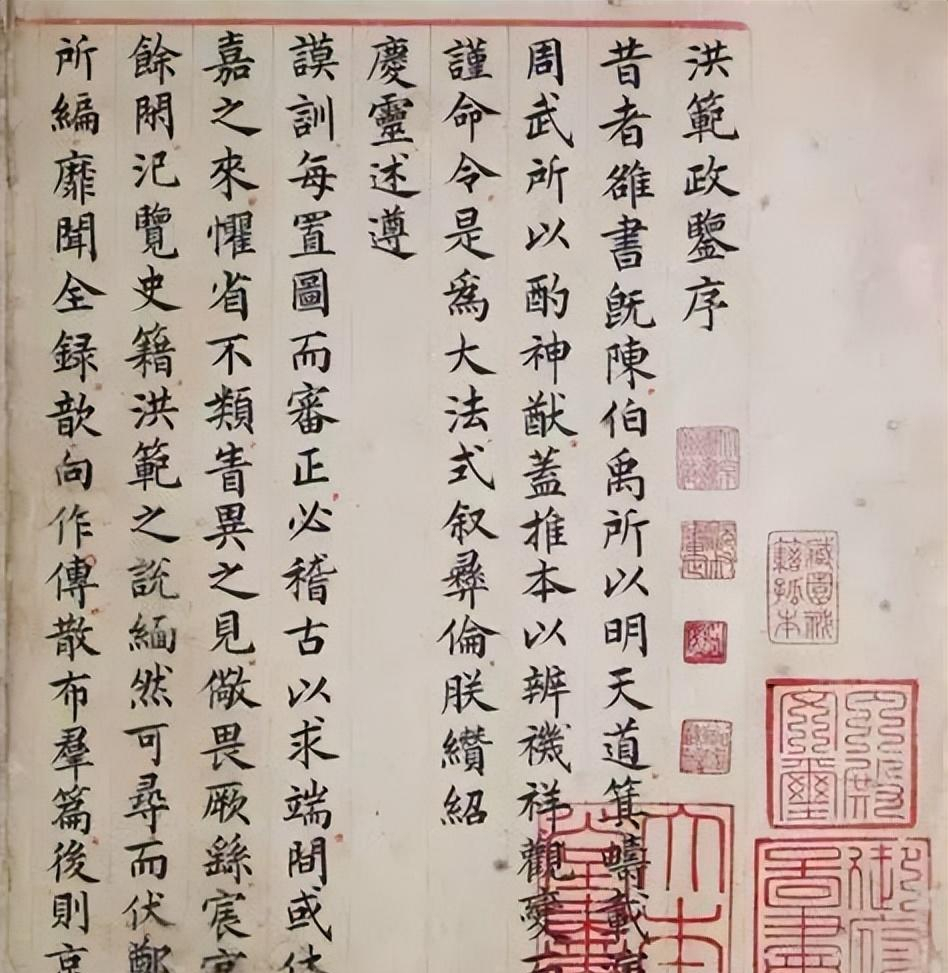 洪範政鑒序
昔者雒書既陳伯禹所以明天道箕疇載
周武所以酌神猷蓋推本以辨禨祥觀變
謹命令是爲大法式叙彝倫朕纘紹
慶靈述遵
謨訓每置圖而審正必稽古以求端間或
嘉之來懼省不類眚異之見儆畏厥繇宸
餘閑汜覽史籍洪範之説緬然可尋而伏鄭
所編靡聞全録歆向作傳散布羣篇後則京
藏園秘籍孤本